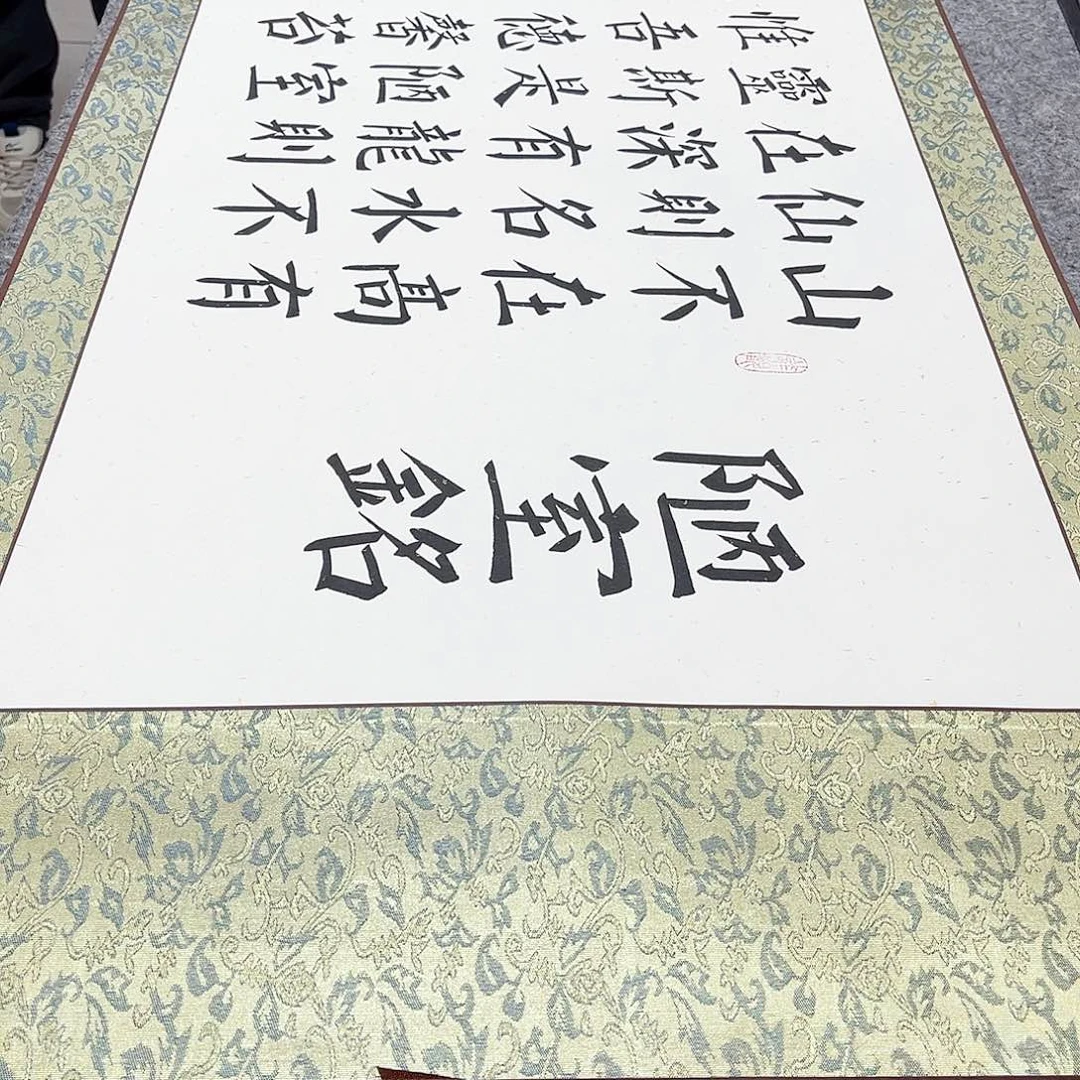 陋室銘
山不在髙有
仙則名水不
在深有龍則
靈斯是陋室
惟吾徳馨苔